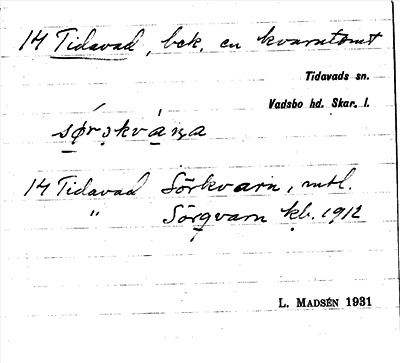 14 Tidavad, bek. en kvarntomt
Tidavads sn.
Vadsbo hd. Skar. l.
sǿrs̩kvána
14 Tidavad Sörkvarn, mtl.
" Sörqvarn kb. 1912
L. MADSÉN 1931